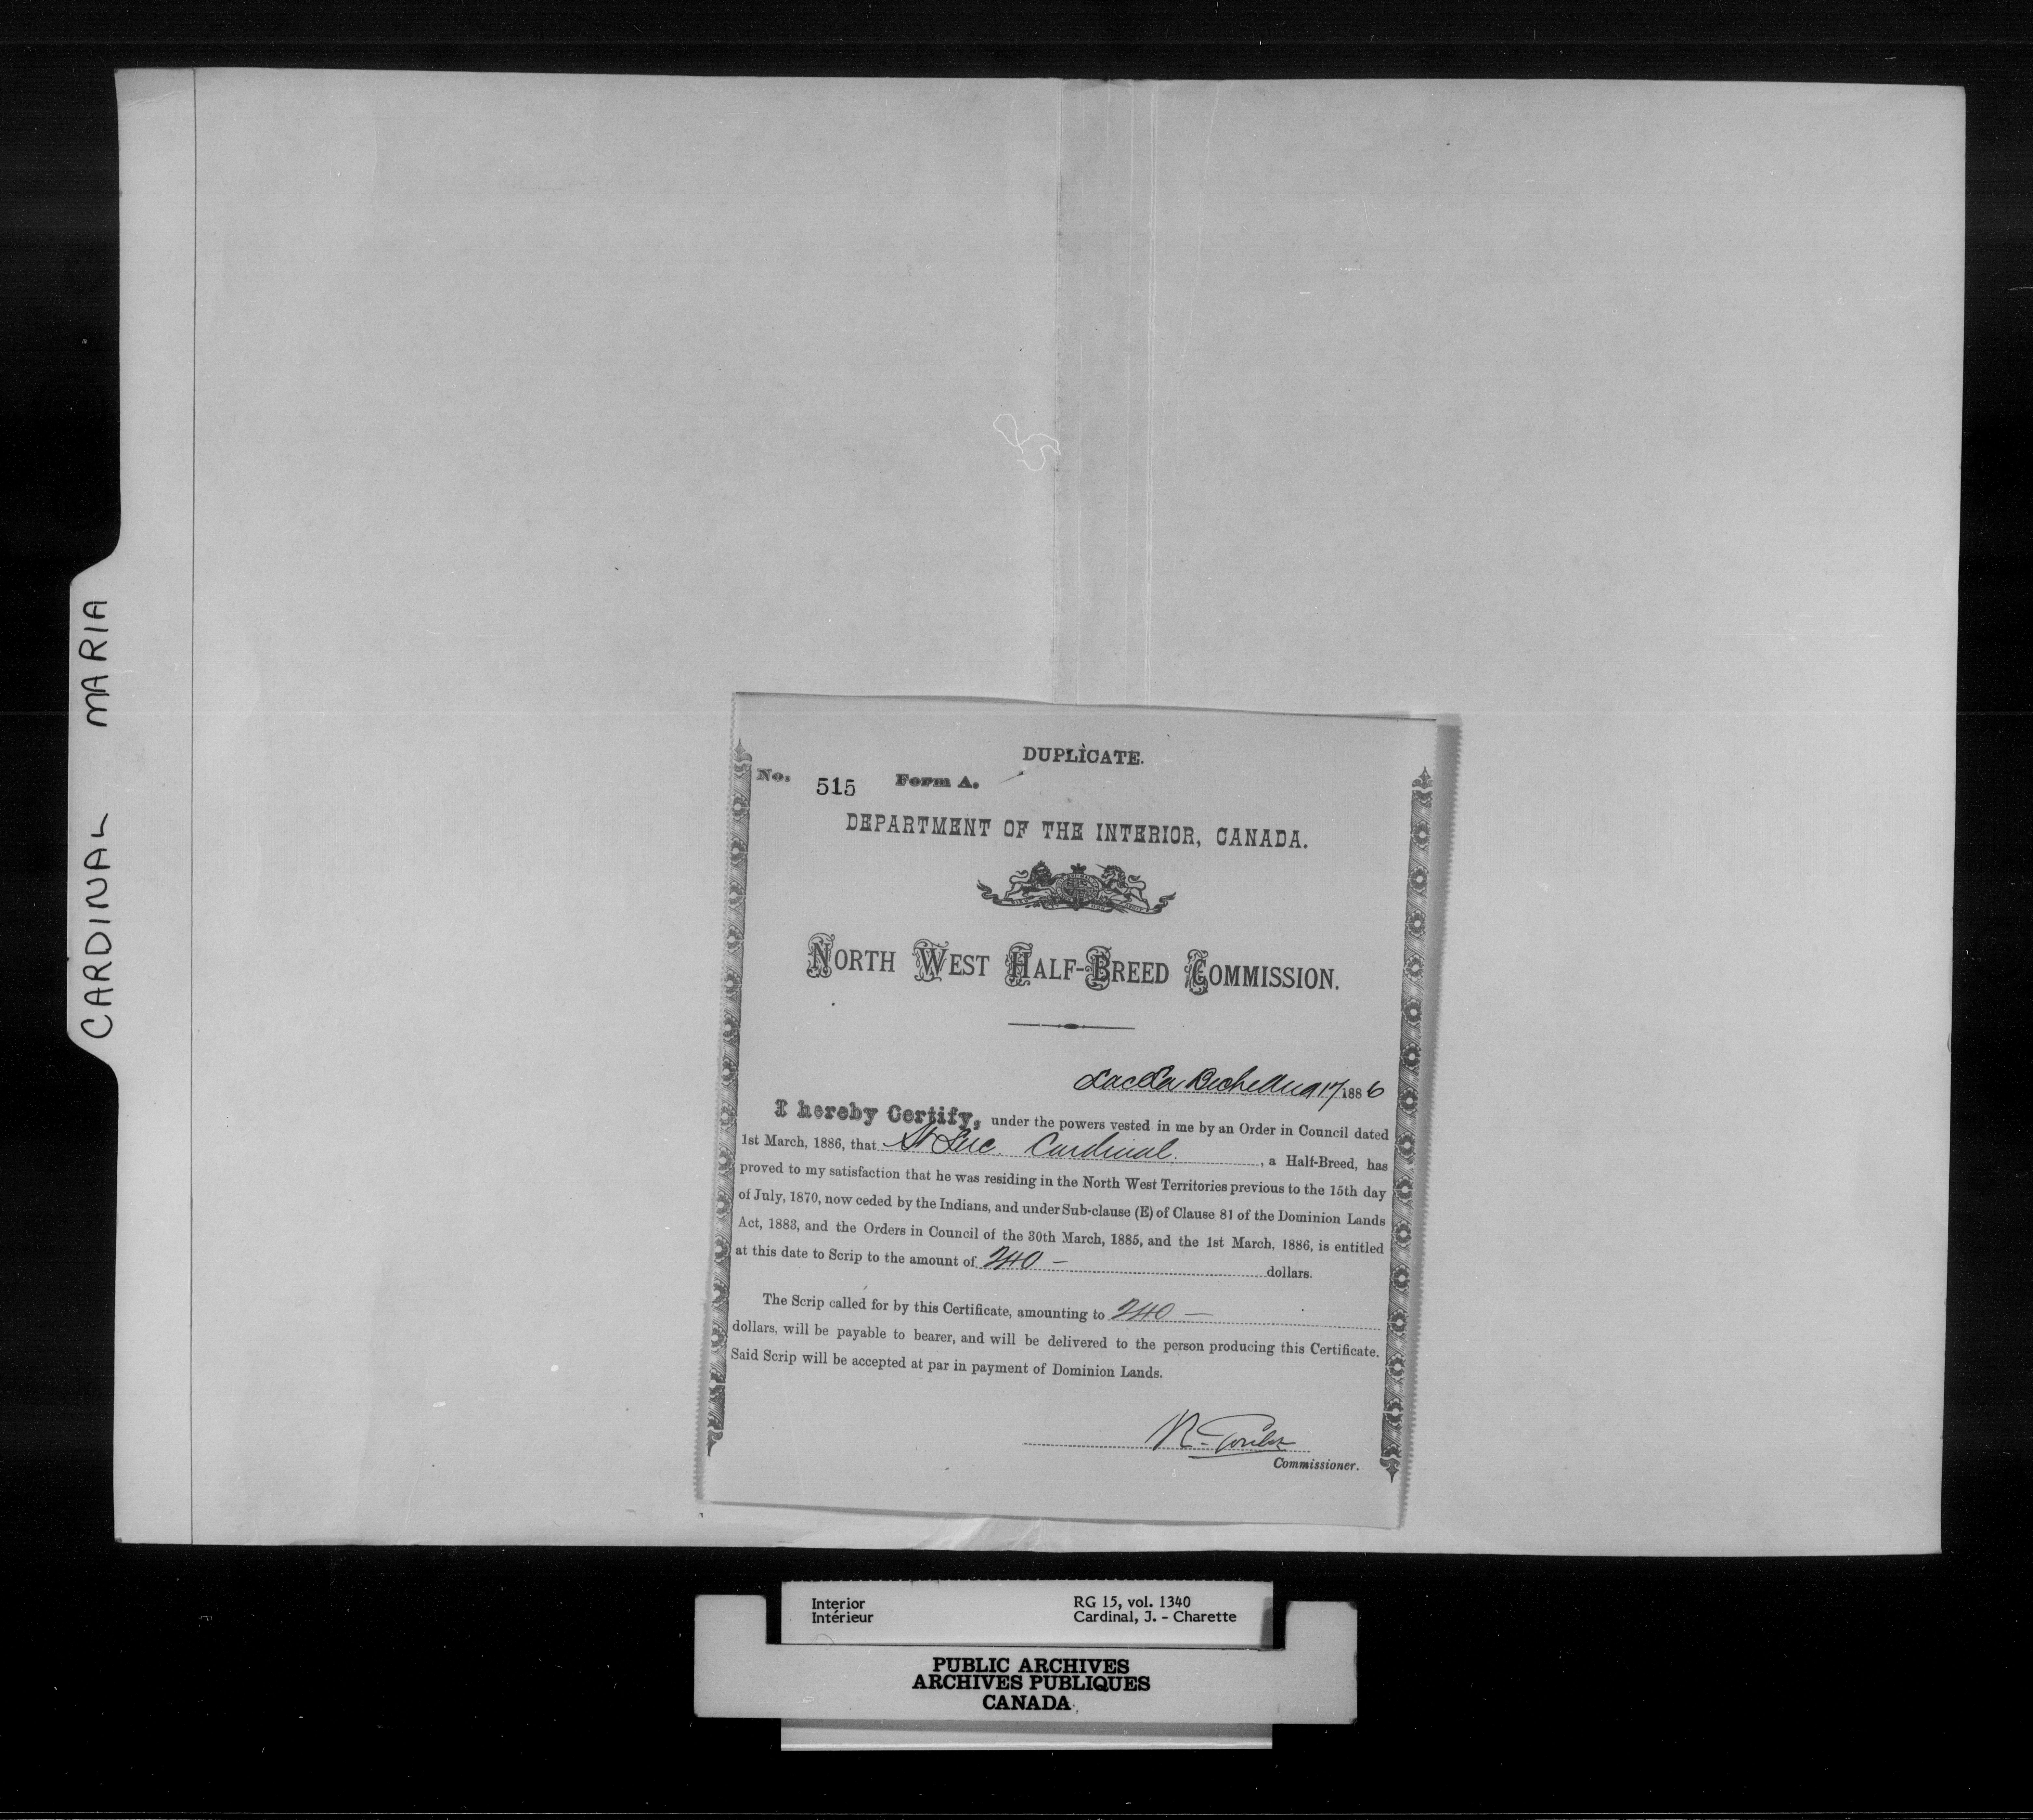 CARDINAL MARIA
DUPLICATE.
No. 515 Form A.
DEPARTMENT OF THE INTERIOR, CANADA.
NORTH WEST HALF-BREED COMMISSION.
Lac La Biche Aug 17 1886
I hereby Certify, under the powers vested in me by an Order in Council dated
1st March, 1886, that St Luc Cardinal , a Half-Breed, has
proved to my satisfaction that he was residing in the North West Territories previous to the 15th day
of July, 1870, now ceded by the Indians, and under Sub-clause (E) of Clause 81 of the Dominion Lands
Act, 1883, and the Orders in Council of the 30th March, 1885, and the 1st March, 1886, is entitled
at this date to Scrip to the amount of 240 — dollars.
The Scrip called for by this Certificate, amounting to 240 —
dollars, will be payable to bearer, and will be delivered to the person producing this Certificate.
Said Scrip will be accepted at par in payment of Dominion Lands.
Commissioner.
Interior RG 15, vol. 1340
Intérieur Cardinal, J. - Charette
PUBLIC ARCHIVES
ARCHIVES PUBLIQUES
CANADA